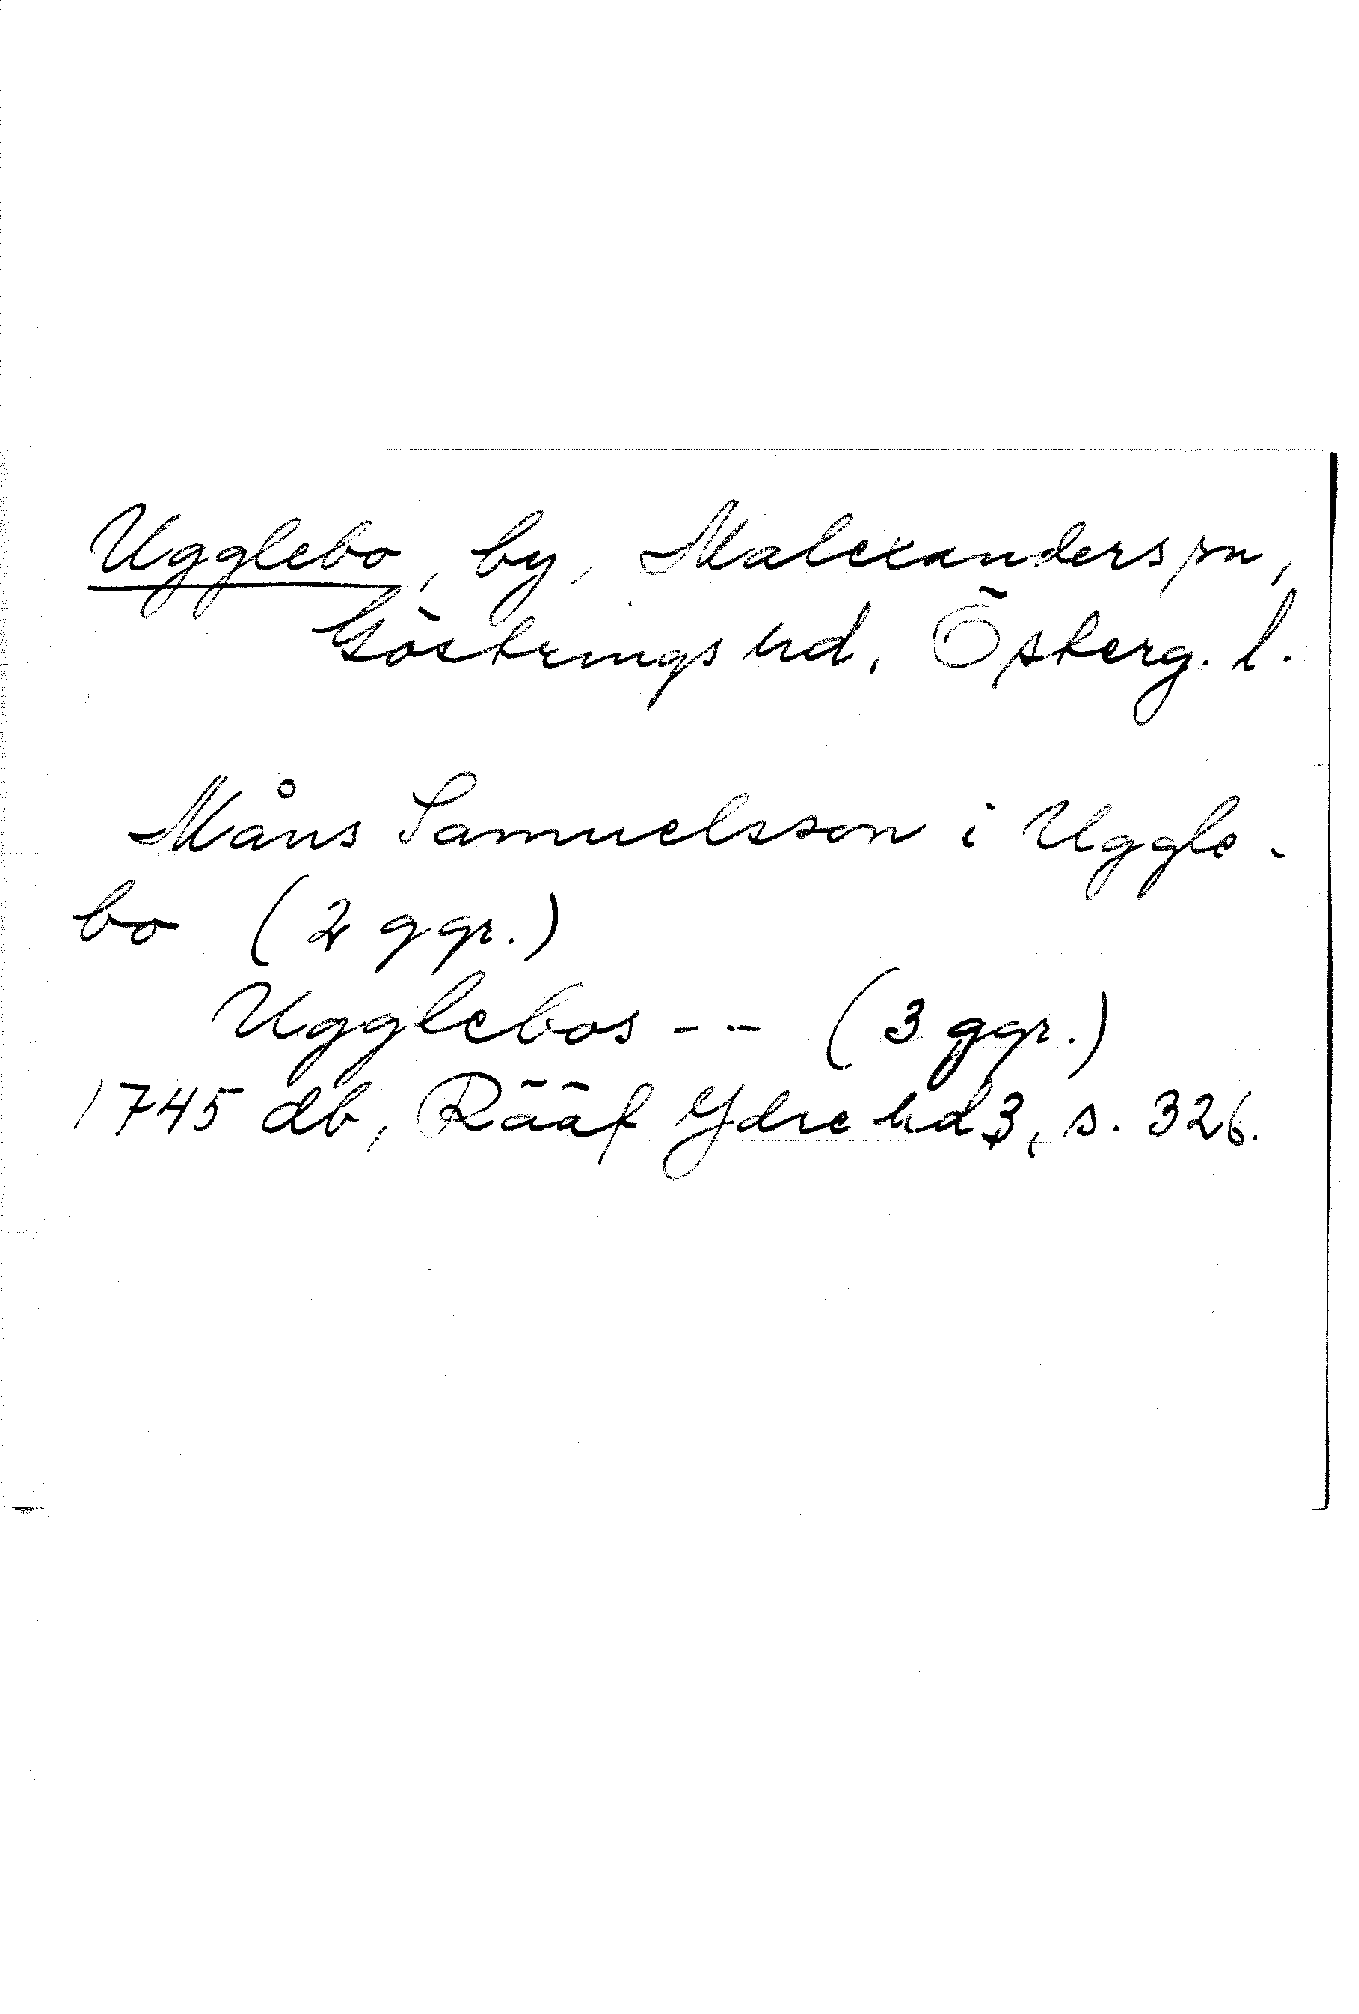 Ugglebo, by, Malexanders sn,
Göstrings hd, Österg. l.
Måns Samuelsson i Uggle-
bo (2 ggr.)
Ugglebos -- (3 ggr.)
1745 db, Rääf Ydre hd 3, s. 326.